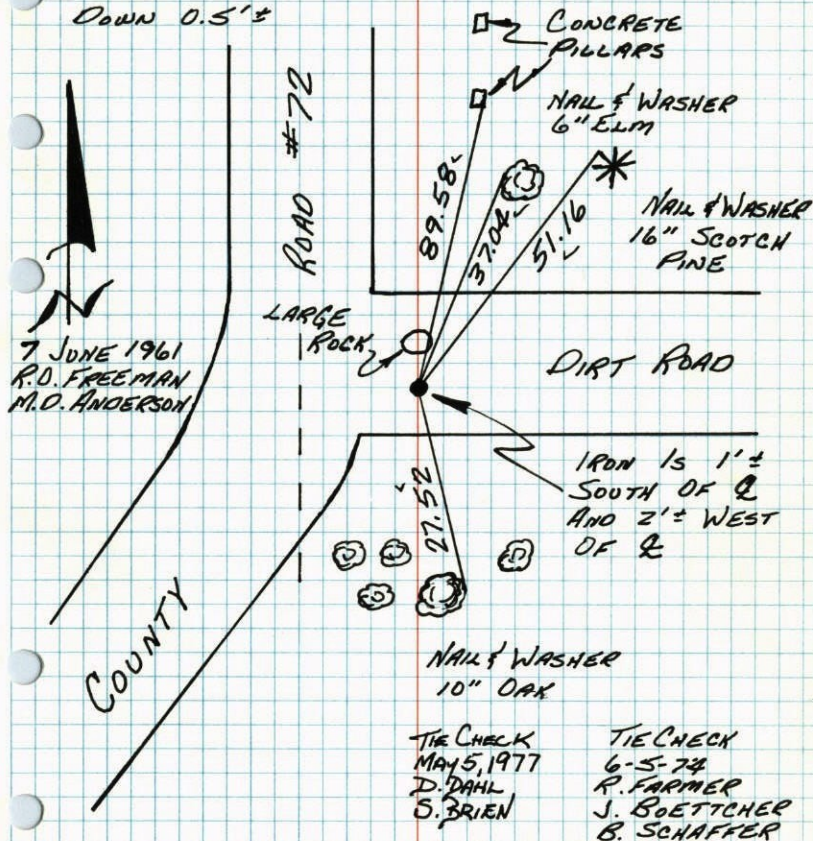 DOWN 0.5'±
CONCRETE
PILLARS
NAIL & WASHER
6" ELM
NAIL & WASHER
16" SCOTCH
PINE
ROAD #72
89.58
37.04
51.16
LARGE
ROCK
7 JUNE 1961
R.O. FREEMAN
M.O. ANDERSON
DIRT ROAD
IRON IS 1'±
SOUTH OF ℄
AND 2'± WEST
OF ℄
27.52
COUNTY
NAIL & WASHER
10" OAK
TIE CHECK
MAY 5, 1977
D. DAHL
S. BRIEN
TIE CHECK
6-5-74
R. FARMER
J. BOETTCHER
B. SCHAFFER